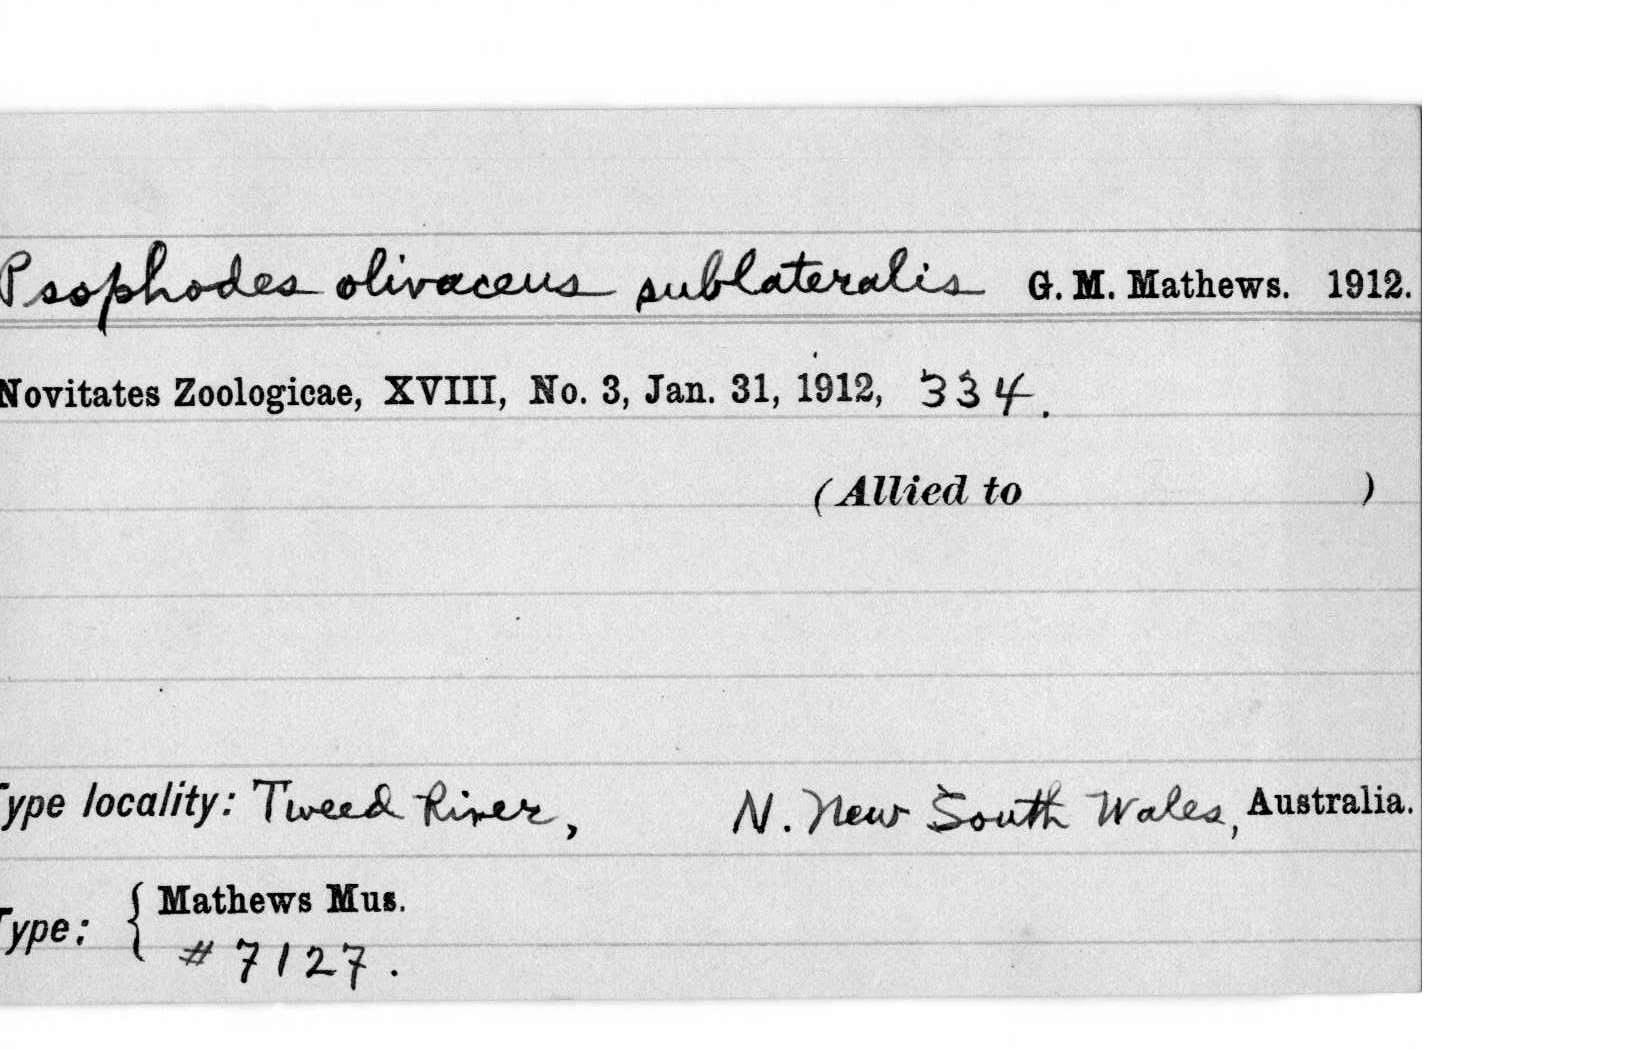 Psophodes olivaceus sublateralis G. M. Mathews. 1912.
Novitates Zoologicae, XVIII, No. 3, Jan. 31, 1912, 334.
(Allied to )
Type locality: Tweed River, N. New South Wales, Australia.
Type: { Mathews Mus.
# 7127.